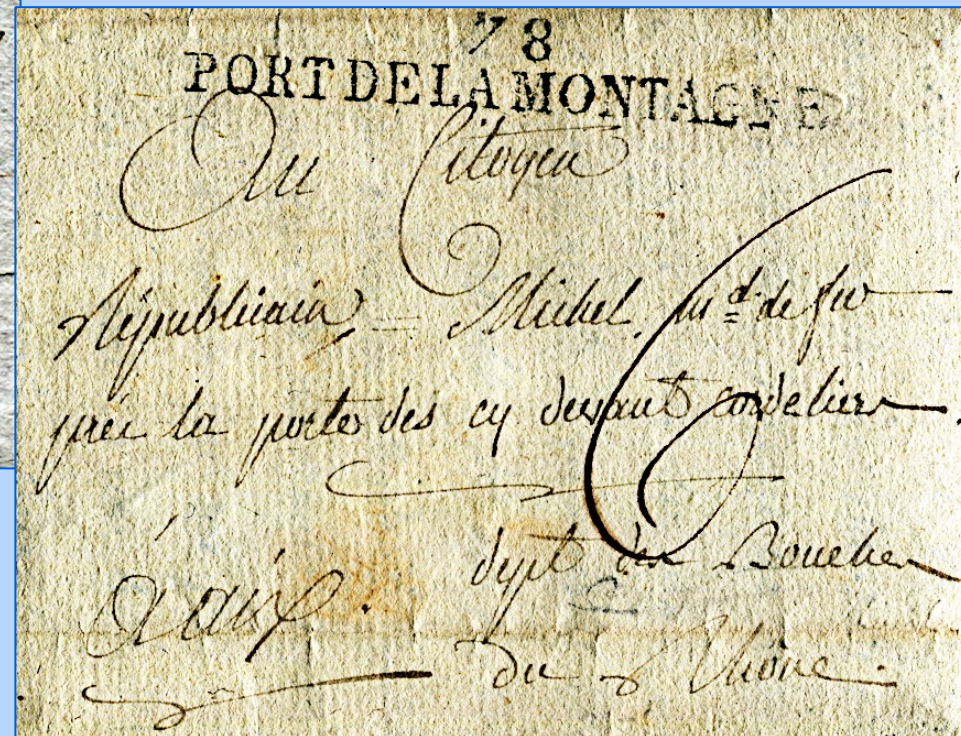 78
PORT DE LA MONTAGNE
Au Citoyen
Républicain = Michel, md de fer
près la porte des cy devant cordeliers
6
à aix. dept des Bouches
du Rhône.